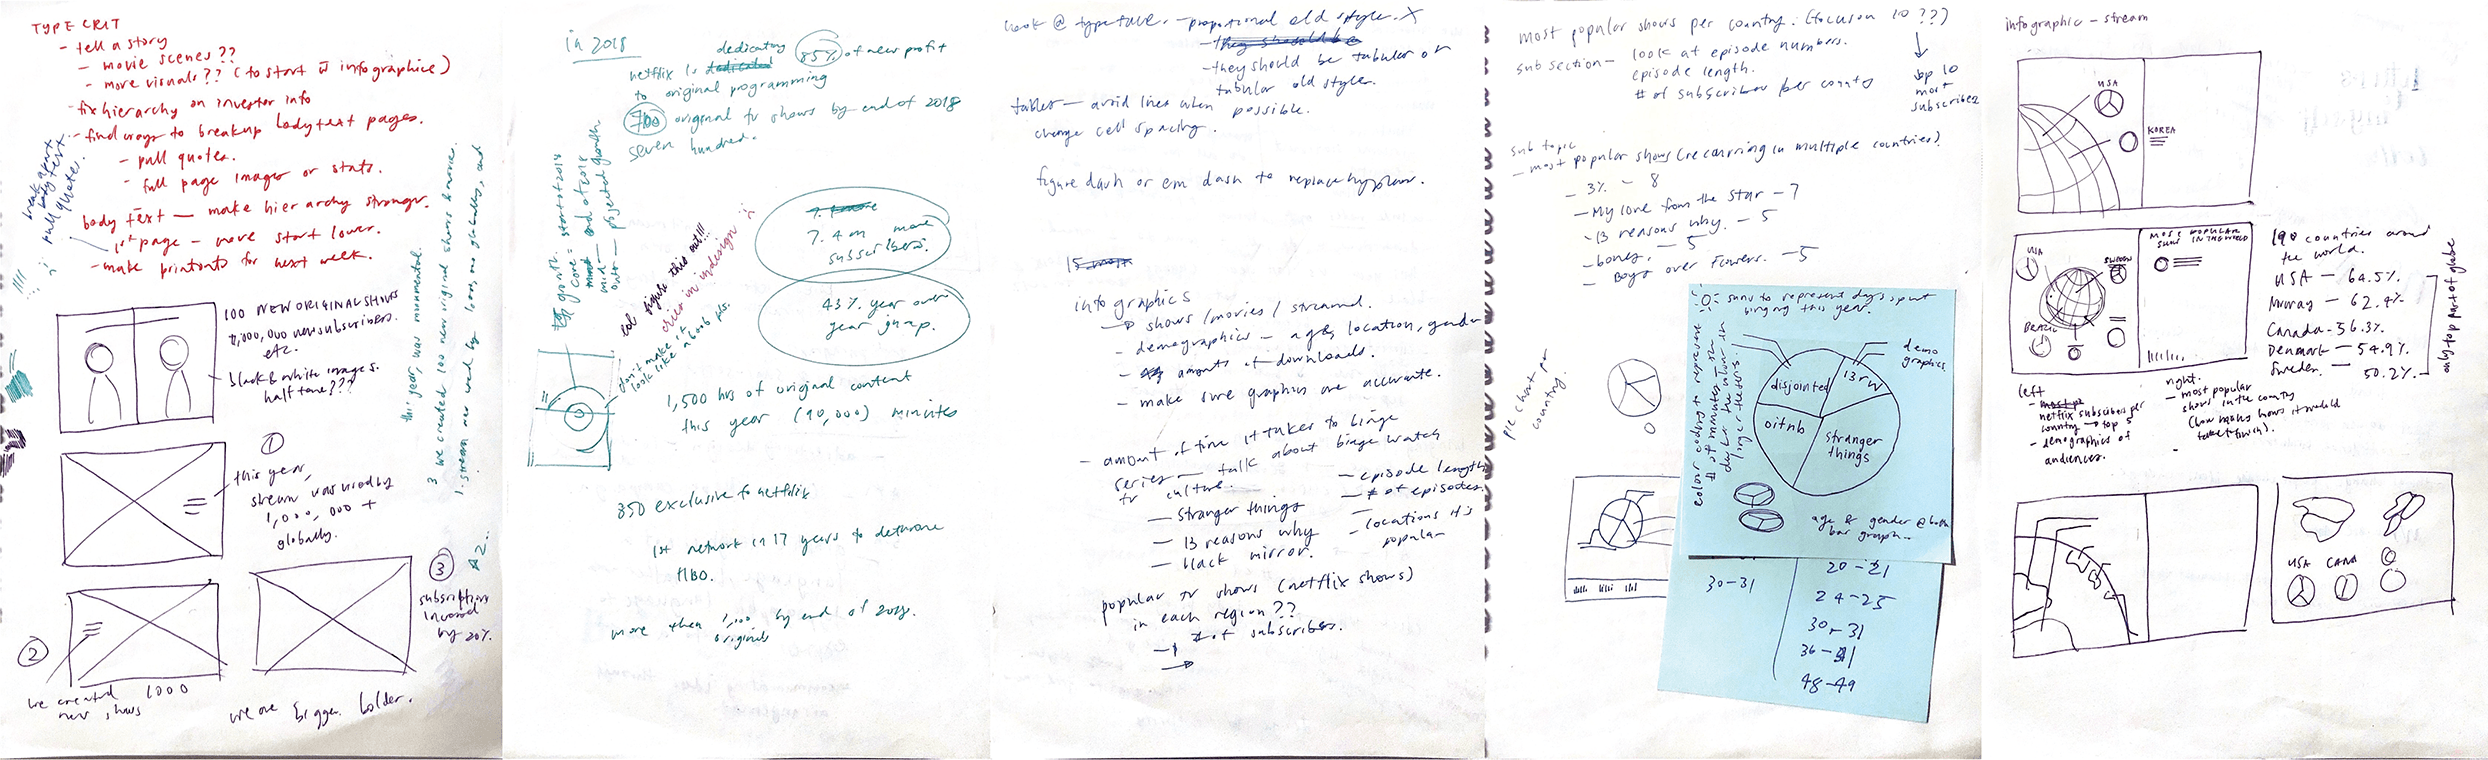 TYPE CRIT
- tell a story
- movie scenes??
- more visuals?? (to start w̄ infographics)
- fix hierarchy on investor info
- find ways to breakup bodytext pages.
- pull quotes.
- full page images or stats.
break apart
body text.
pull quotes.
body text — make hierarchy stronger.
1st page - move start lower.
- make printouts for next week.
100 NEW ORIGINAL SHOWS
etc.
black & white images.
half tone???
①
this year,
stream was used by
1,000,000 +
globally.
②
we created 1000
new shows
③
subscriptions
by 20%.
we are bigger. bolder.
this year, was monumental.
3 we created 100 new original shows & movie.
1. stream was used by 1,000,000 globally, and
in 2018
netflix is dedicating 85% of new profit
to original programming
700 original tv shows by end of 2018
seven hundred.
growth.
core = start of 2018
mid — end of 2018
outer — projected growth.
lol figure this out!!!
cries in indesign :'(
don't make it
look like a boob pls.
7.4 m more
subscribers.
43% year over
year jump.
1,500 hrs of original content
this year (90,000) minutes
850 exclusive to netflix
1st network in 17 years to dethrone
HBO.
more then 1,000 by end of 2018.
originals
look @ typeface. - proportional old style. X
- they should be
- they should be tabular or
tabular old style.
tables — avoid lines when possible.
change cell spacing.
figure dash or em dash to replace hyphen.
15 most
infographics
→ shows/movies/streamed.
- demographics - age, location, gender
- amounts of downloads.
- make sure graphics are accurate.
- amount of time it takes to binge
series — talk about binge watch
tv culture.
— stranger things
— 13 reasons why
— black mirror.
— episode length
— # of episodes.
— locations it's
popular
popular tv shows (netflix shows)
in each region??
# of subscribers.
most popular shows per country. (focus on 10 ???)
sub section - look at episode numbers.
episode length.
# of subscriber per country
top 10
most
subscribed
sub topic
- most popular shows (recurring in multiple countries)
- 3% - 8
- My love from the star - 7
- 13 reasons why. - 5
- bones. - 5
- Boys over Flowers. - 5
pie chart per
country.
suns to represent days spent
binging this year.
demo
graphics
disjointed
13rw
oitnb
stranger
things
age & gender @ both
bar graph.
30-31
20-21
24-25
30-31
36-41
48-49
infographic - stream
USA
KOREA
USA
SWEDEN
BRAZIL
MOST POPULAR
SHOWS IN THE WORLD
190 countries around
the world.
USA — 64.5%
Norway — 62.4%
Canada - 56.3%
Denmark — 54.9%
Sweden. — 50.2%
only top part of globe
left
netflix subscribers per
country → top 5
- demographics of
audiences.
right.
- most popular
shows in the country
(how many hours it would
take to finish).
USA CANA